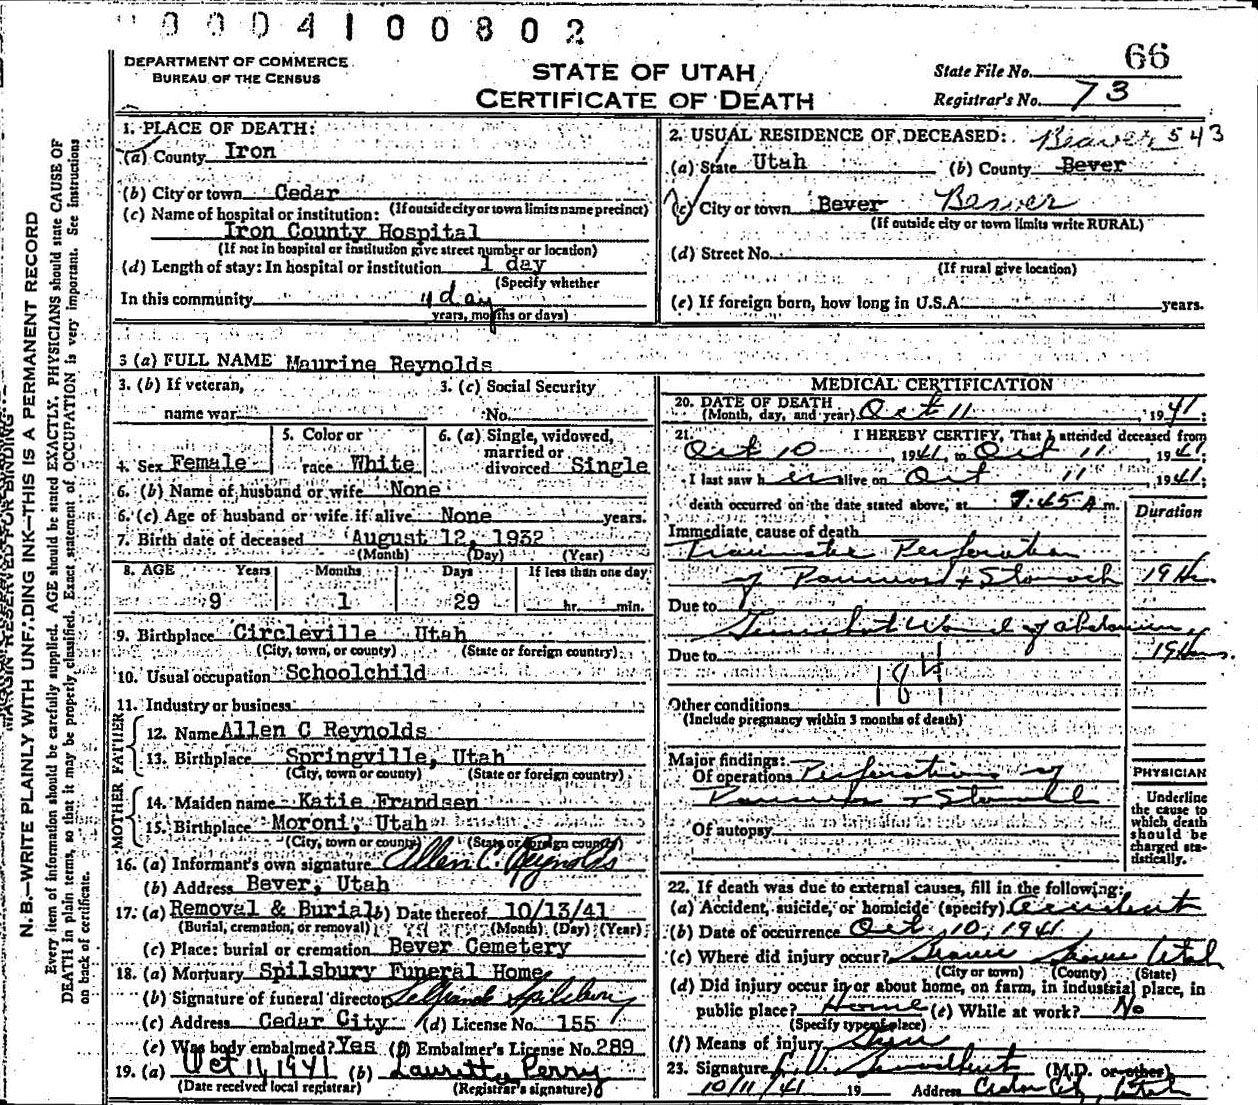 0004100802
DEPARTMENT OF COMMERCE
BUREAU OF THE CENSUS
STATE OF UTAH
CERTIFICATE OF DEATH
66
State File No.
Registrar's No. 73
N. B.—WRITE PLAINLY WITH UNFADING INK—THIS IS A PERMANENT RECORD
Every item of information should be carefully supplied. AGE should be stated EXACTLY. PHYSICIANS should state CAUSE OF
DEATH in plain terms, so that it may be properly classified. Exact statement of OCCUPATION is very important. See instructions
on back of certificate.
1. PLACE OF DEATH:
(a) County Iron
(b) City or town Cedar
(If outside city or town limits name precinct)
(c) Name of hospital or institution:
Iron County Hospital
(If not in hospital or institution give street number or location)
(d) Length of stay: In hospital or institution 1 day
(Specify whether
In this community 1 day
years, months or days)
2. USUAL RESIDENCE OF DECEASED: Beaver 543
(a) State Utah (b) County Bever
(c) City or town Bever Beaver
(If outside city or town limits write RURAL)
(d) Street No.
(If rural give location)
(e) If foreign born, how long in U.S.A. years.
3 (a) FULL NAME Maurine Reynolds
3. (b) If veteran,
name war
3. (c) Social Security
No.
4. Sex Female
5. Color or
race White
6. (a) Single, widowed,
married or
divorced Single
6. (b) Name of husband or wife None
6. (c) Age of husband or wife if alive None years.
7. Birth date of deceased August 12, 1932
(Month) (Day) (Year)
8. AGE Years Months Days If less than one day
9 1 29 hr. min.
9. Birthplace Circleville Utah
(City, town, or county) (State or foreign country)
10. Usual occupation Schoolchild
11. Industry or business
FATHER
12. Name Allen C Reynolds
13. Birthplace Springville, Utah
(City, town or county) (State or foreign country)
MOTHER
14. Maiden name Katie Frandsen
15. Birthplace Moroni, Utah
(City, town or county) (State or foreign country)
16. (a) Informant's own signature Allen C. Reynolds
(b) Address Bever, Utah
17. (a) Removal & Burial (b) Date thereof 10/13/41
(Burial, cremation, or removal) (Month) (Day) (Year)
(c) Place: burial or cremation Bever Cemetery
18. (a) Mortuary Spilsbury Funeral Home
(b) Signature of funeral director Spilsbury
(c) Address Cedar City (d) License No. 155
(e) Was body embalmed? Yes (f) Embalmer's License No. 289
19. (a) Oct 14, 1941 (b) Lauretta Perry
(Date received local registrar) (Registrar's signature)
MEDICAL CERTIFICATION
20. DATE OF DEATH
(Month, day, and year) Oct 11, 1941:
21. I HEREBY CERTIFY, That I attended deceased from
Oct 10, 1941, to Oct 11, 1941;
I last saw her alive on Oct 11, 1941;
death occurred on the date stated above, at 7:45 A m.
Duration
Immediate cause of death
Traumatic Perforation
of Pancreas & Stomach 19 Hrs
Due to
Gunshot Wound of abdomen,
Due to 19 Hrs.
184
Other conditions
(Include pregnancy within 3 months of death)
Major findings:
Of operations Perforation of
Pancreas & Stomach
Of autopsy
PHYSICIAN
Underline
the cause to
which death
should be
charged sta-
tistically.
22. If death was due to external causes, fill in the following:
(a) Accident, suicide, or homicide (specify) accident
(b) Date of occurrence Oct. 10, 1941
(c) Where did injury occur? Utah
(City or town) (County) (State)
(d) Did injury occur in or about home, on farm, in industrial place, in
public place? Home (e) While at work? No
(Specify type of place)
(f) Means of injury
23. Signature (M.D. or other)
10/11/41 19 Address Cedar City, Utah